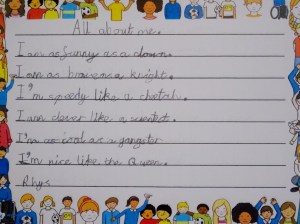 All about me.
I am as funny as a clown.
I am as brave as a knight.
I'm speedy like a cheetah.
I am clever like a scientist.
I'm as cool as a gangster
I'm nice like the Queen.
Rhys